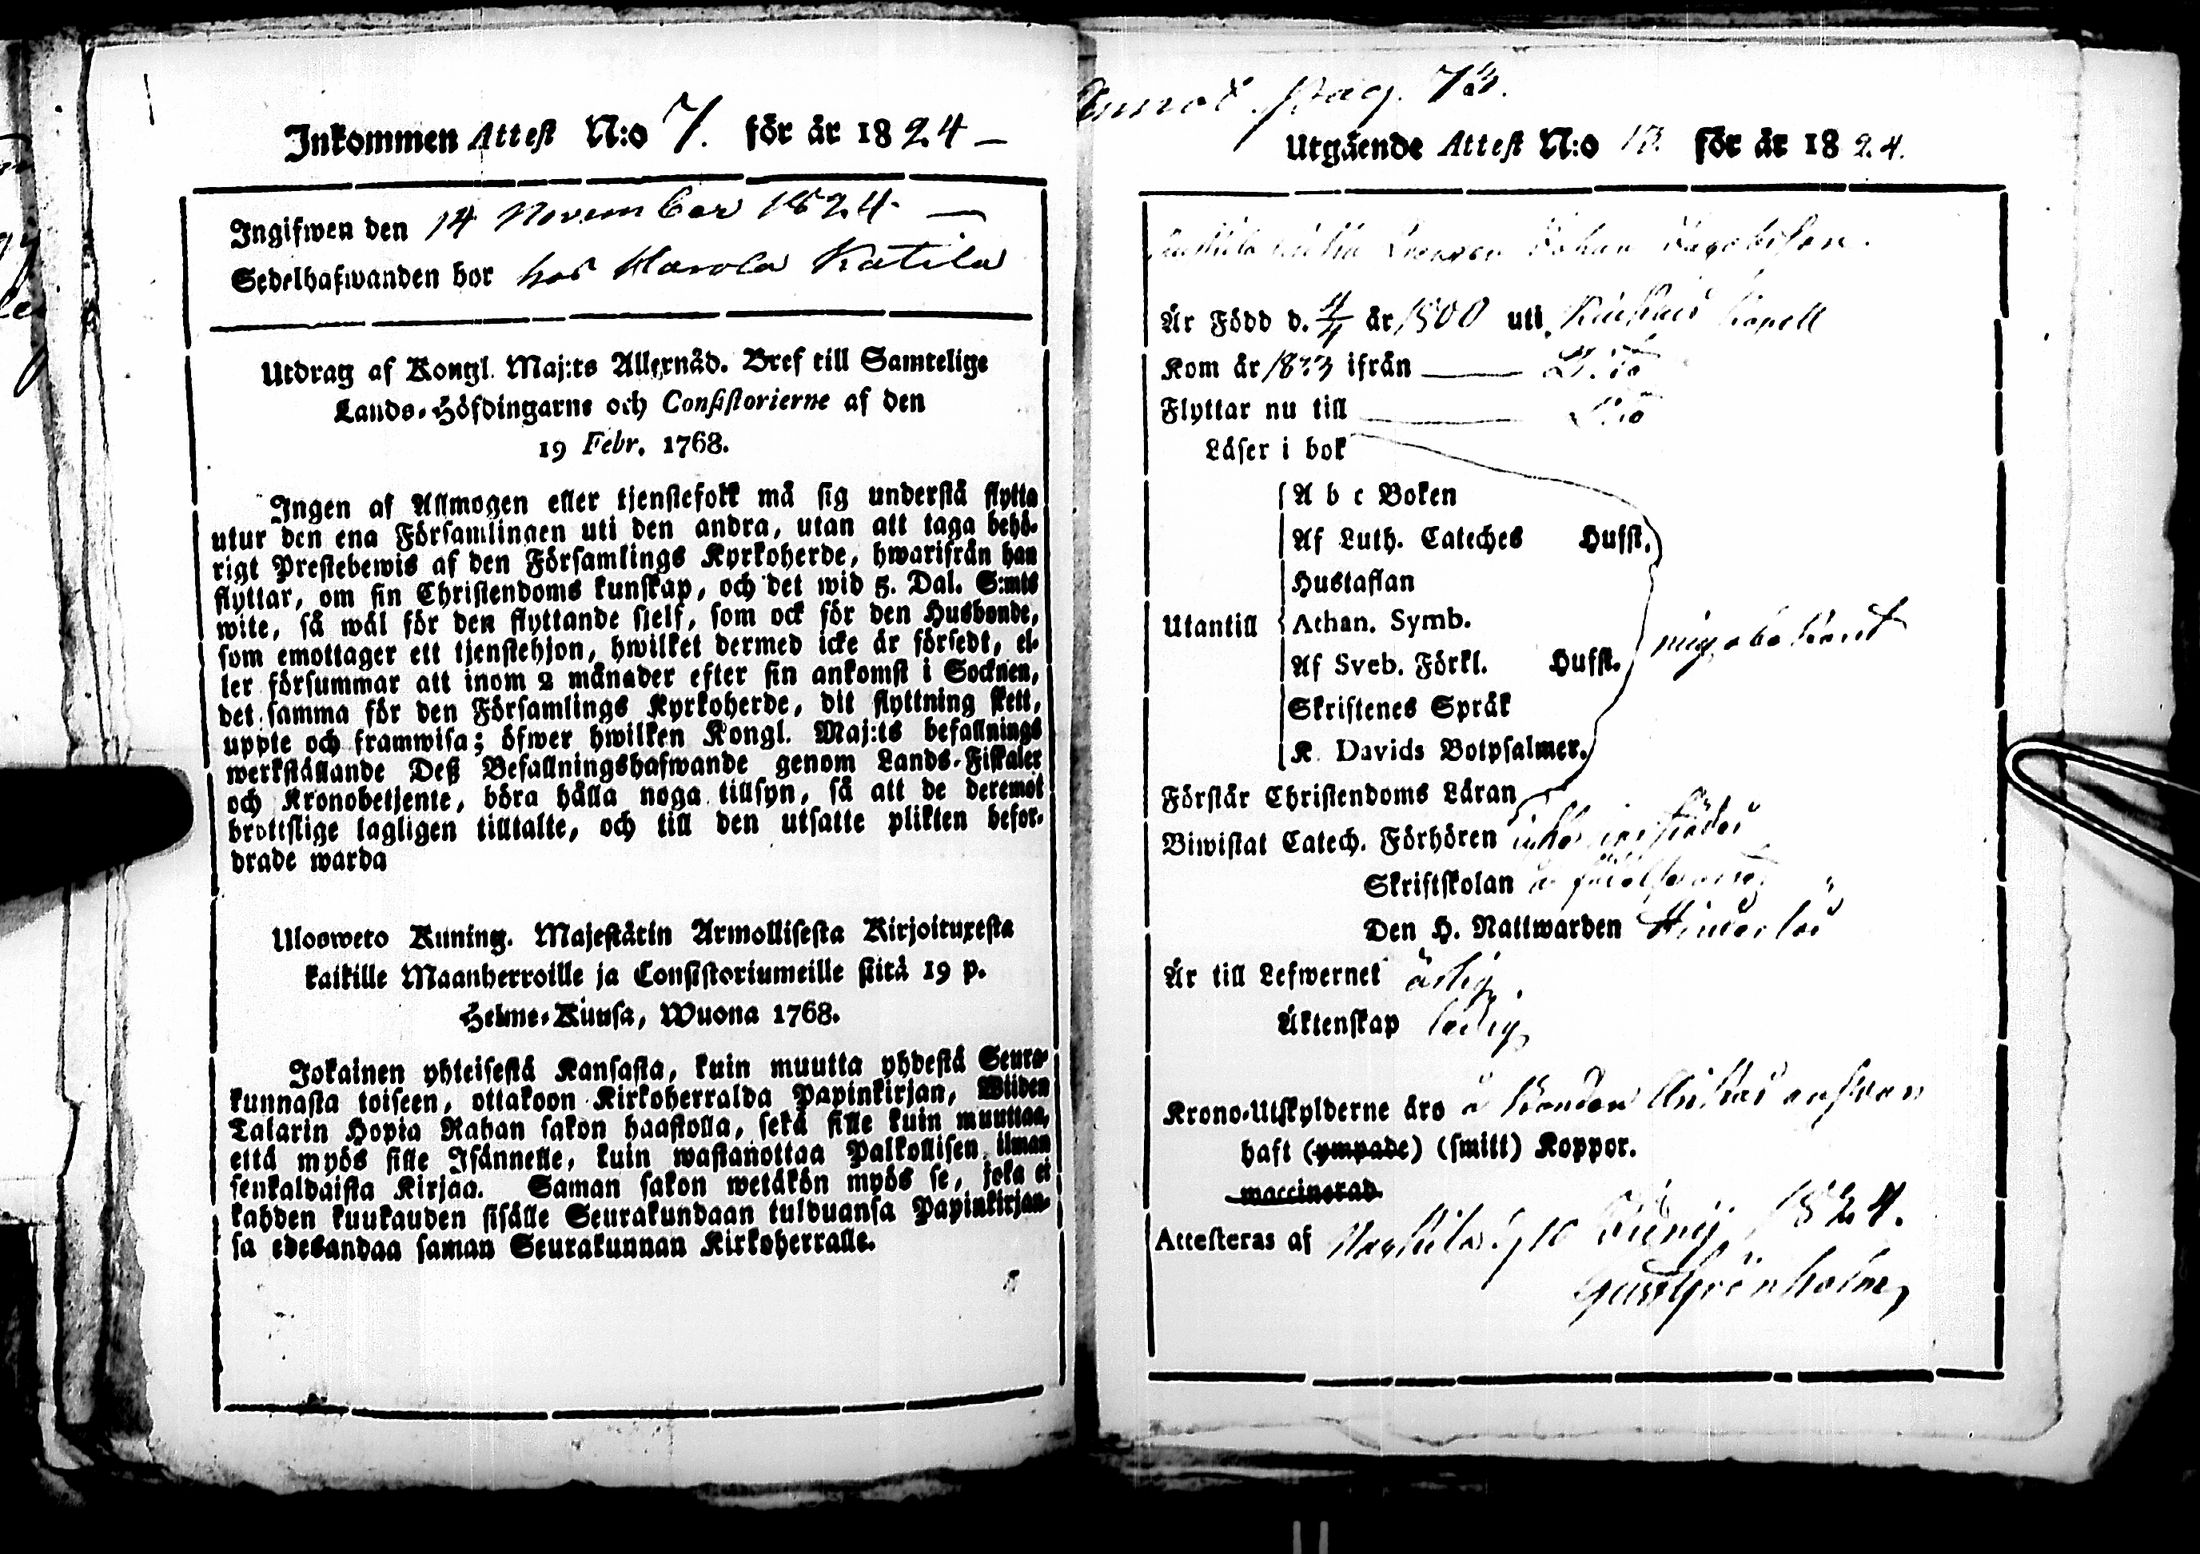 Inkommen Attest N:o 7. för år 1824 —
Ingifwen den 14 November 1824. —
Sedelhafwanden bor hos Marola Katila
Utdrag af Kongl. Maj:ts Allernåd. Bref till Samtelige
Lands-Höfdingarne och Consistorierne af den
19 Febr. 1768.
Ingen af Allmogen eller tjenstefolk må sig understå flytta
utur den ena Församlingen uti den andra, utan att taga behö-
rigt Prestebewis af den Församlings Kyrkoherde, hwarifrån han
flyttar, om sin Christendoms kunskap, och det wid 5. Dal. S:mts
wite, så wäl för den flyttande sjelf, som ock för den Husbonde,
som emottager ett tjenstehjon, hwilket dermed icke är försedt, el-
ler försummar att inom 2 månader efter sin ankomst i Socknen,
det samma för den Församlings Kyrkoherde, dit flyttning skett,
uppte och framwisa; öfwer hwilken Kongl. Maj:ts befallnings
werkställande Deß Befallningshafwande genom Lands-Fiskaler
och Kronobetjente, böra hålla noga tillsyn, så att de deremot
brottslige lagligen tilltalte, och till den utsatte plikten befor-
drade warda
Ulosweto Kuning. Majestätin Armollisesta Kirjoituxesta
kaikille Maanherroille ja Consistoriumeille siitä 19 p.
Helme-Kuusa, Wuona 1768.
Jokainen yhteisestä Kansasta, kuin muutta yhdestä Seura-
kunnasta toiseen, ottakoon Kirkoherralda Papinkirjan, Wiiden
Talarin Hopia Rahan sakon haastolla, sekä sille kuin muuttaa,
että myös sille Isännelle, kuin wastanottaa Palkollisen ilman
senkaldaista Kirjaa. Saman sakon wetäkön myös se, joka ei
kahden kuukauden sisälle Seurakundaan tulduansa Papinkirjan-
sa edesandaa saman Seurakunnan Kirkoherralle.
Annot. pag. 73.
Utgående Attest N:o 13. för år 1824.
Johan Jacobsson.
Är Född d. år 1800 uti Kapell
Kom år 1823 ifrån ——
Flyttar nu till ——
Läser i bok
A b c Boken
Af Luth. Cateches Hufst.
Hustaflan
Utantill Athan. Symb.
Af Sveb. Förkl. Hufst. mig obekant
Skriftenes Språk
K. Davids Botpsalmer.
Förstår Christendoms Läran
Biwistat Catech. Förhören
Skriftskolan
Den H. Nattwarden
Är till Lefwernet ärlig
Äktenskap ledig
Krono-Utskylderne äro
haft (ympade) (smitt) Koppor.
waccinerad.
Attesteras af 10 Junij 1824.
Gust Grönholm